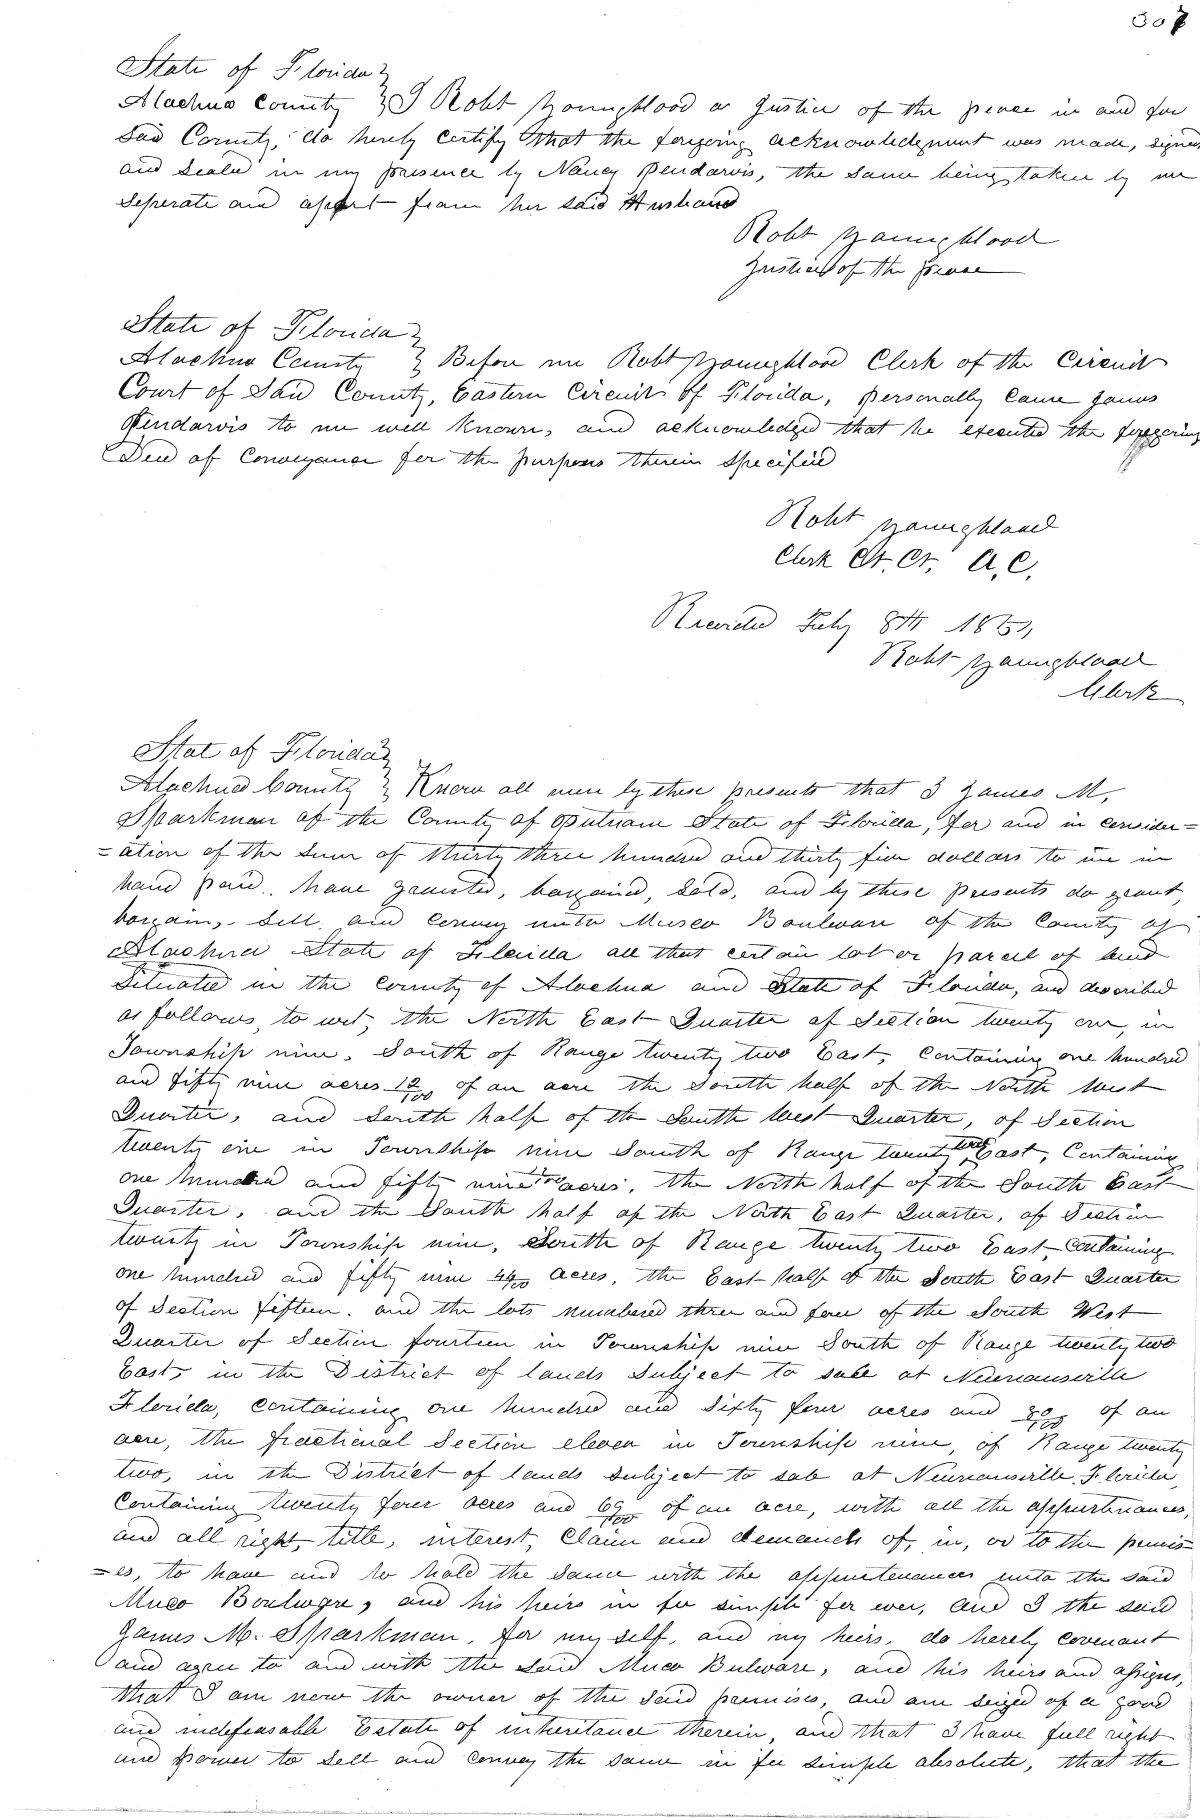 307
State of Florida }
Alachua County } I Robt Youngblood a Justice of the peace in and for
Said County, do herely certify that the foregoing acknowledgment was made, signed
and Sealed in my presence by Nancy Pendarvis, the same being taken by me
seperate and apart from her said Husband
Robt Youngblood
Justice of the peace
State of Florida }
Alachua County } Before me Robt Youngblood Clerk of the Circuit
Court of Said County, Eastern Circuit of Florida, personally came James
Pendarvis to me well known, and acknowledged that he executed the foregoing
Deed of Conveyance for the purposes therein specified
Robt Youngblood
Clerk Ct. Ct. A. C.
Recorded July 8th 1851,
Robt Youngblood
Clerk
Stat of Florida }
Alachua County } Know all men by these presents that I James M.
Sparkman of the County of Putnam State of Florida, for and in consider=
=ation of the sum of thirty three hundred and thirty five dollars to me in
hand paid. have granted, bargained, sold, and by these presents do grant,
bargain, sell, and convey unto Musco Boulware of the County of
Alachua State of Florida all that certain lot or parcel of land
Situated in the County of Alachua and State of Florida, and described
as follows, to wit, the North East Quarter of Section twenty one, in
Township nine, South of Range twenty two East, containing one hundred
and fifty nine acres 12/100 of an acre the South half of the North West
Quarter, and South half of the South West Quarter, of Section
twenty one in Township nine South of Range twenty two East, Containing
one hundred and fifty nine acres, the North half of the South East
Quarter, and the South half of the North East Quarter, of Section
twenty in Township nine, South of Range twenty two East, containing
one hundred and fifty nine 44/100 acres, the East half of the South East Quarter
of Section fifteen. and the lots numbered three and four of the South West
Quarter of Section fourteen in Township nine South of Range twenty two
East, in the District of lands subject to sale at Newnansville
Florida, containing one hundred and sixty four acres and 80/100 of an
acre, the fractional Section eleven in Township nine, of Range twenty
two, in the District of lands subject to sale at Newnansville Florida,
Containing twenty four acres and 69/100 of an acre, with all the appurtenances,
and all right, title, interest, claim and demands of, in, or to the premis=
=es, to have and to hold the same with the appurtenances unto the said
Muco Boulware, and his heirs in fee simple for ever, and I the said
James M. Sparkman, for my self, and my heirs, do herely covenant
and agree to and with the said Muco Bulware, and his heirs and assigns,
that I am now the owner of the said premises, and am seized of a good
and indefeasable Estate of inheritance therein, and that I have full right
and power to sell and convey the same in fee simple absolute, that the